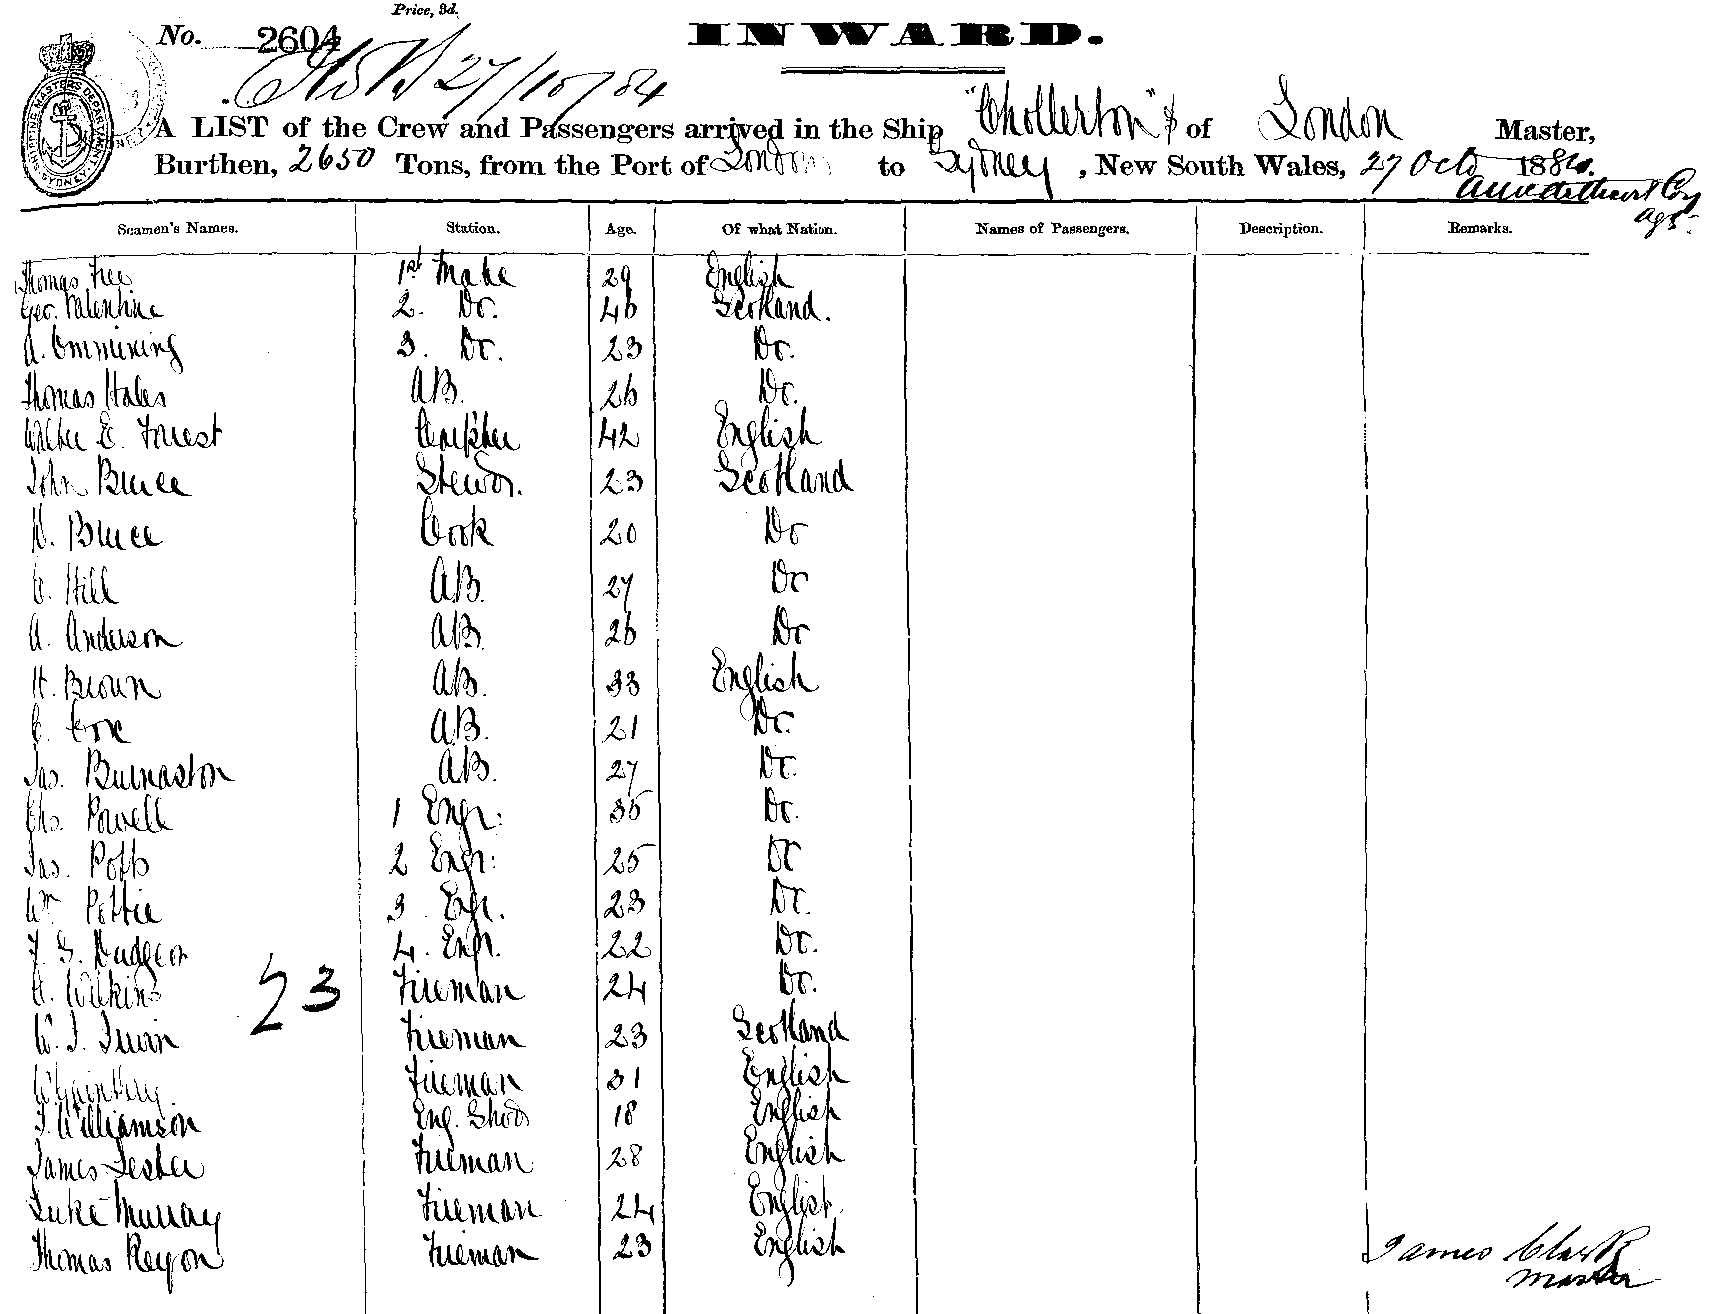 Price, 3d.
No. 2604
INWARD.
27/10/84
A LIST of the Crew and Passengers arrived in the Ship "Chollerton" of London Master,
Burthen, 2650 Tons, from the Port of London to Sydney, New South Wales, 27 Octo 1884.
Agts.
Seamen's Names. Station. Age. Of what Nation. Names of Passengers. Description. Remarks.
Thomas Free 1st Mate 29 English
Geo. Valentine 2. Do. 46 Scotland.
A. 3. Do. 23 Do.
Thomas Hales AB. 26 Do.
Walter E. Forrest 42 English
John Bruce Stewd. 23 Scotland
D. Bruce Cook 20 Do
C. Hill AB. 27 Do
A. Anderson AB. 26 Do
H. Brown AB. 33 English
C. Cox AB. 21 Do.
Jas. Burnaston AB. 27 Do.
Chs. Powell 1 Engr. 35 Do.
Jas. Potts 2 Engr. 25 Do
Wm Pettie 3. Egr. 23 Do.
F. G. Dudgeon 4. Engr. 22 Do.
Wilkins Fireman 24 Do.
23
W. J. Irwin Fireman 23 Scotland
Fireman 31 English
J. Williamson Eng. Stwd 18 English
James Lester Fireman 28 English
Luke Murray Fireman 24 English
Thomas Regon Fireman 23 English
James Clark
Master